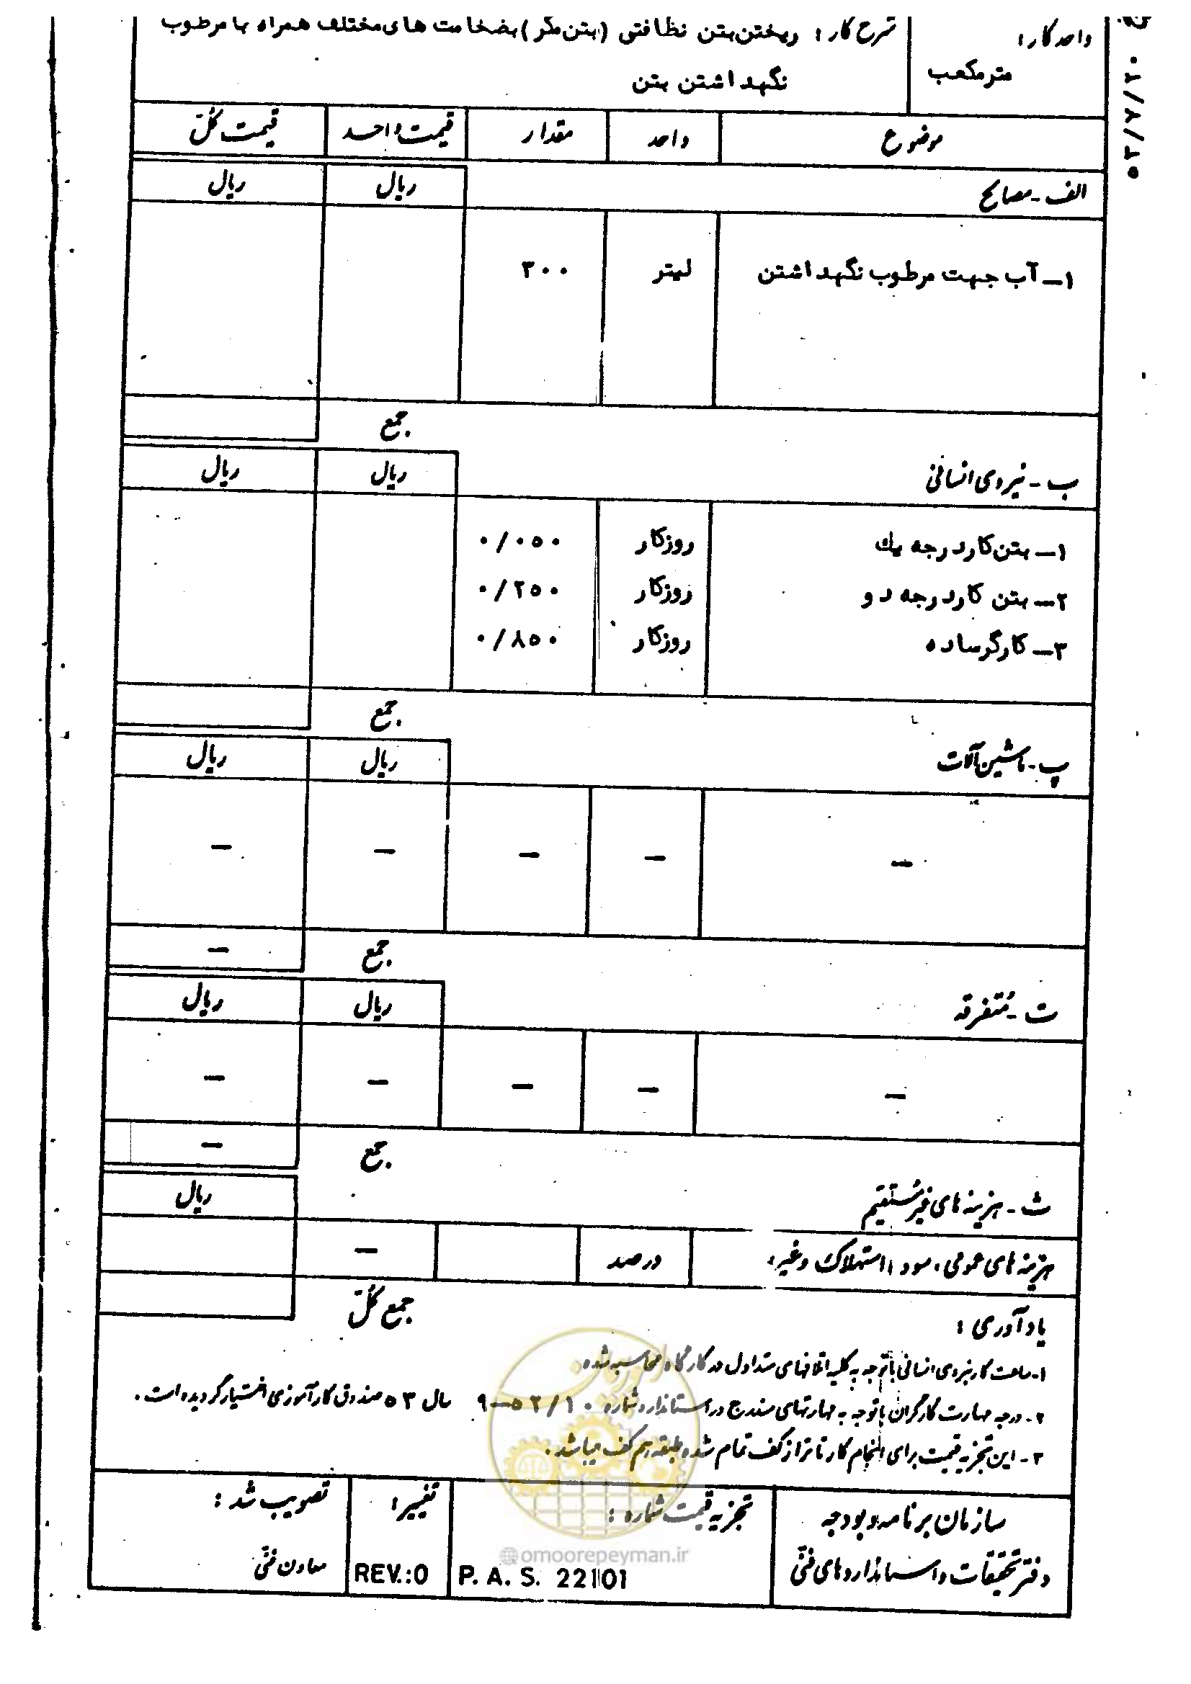 واحد کار :
شرح کار : ریختن بتن نظافتی (بتن مگر) بضخامت های مختلف همراه با مرطوب
مترمکعب
نگهداشتن بتن
موضوع واحد مقدار قیمت واحد قیمت کل
الف - مصالح ریال ریال
۱- آب جهت مرطوب نگهداشتن لیتر ۳۰۰
جمع
ب - نیروی انسانی ریال ریال
۱- بتن کار درجه یک روزکار ۰/۰۵۰
۲- بتن کار درجه دو روزکار ۰/۲۵۰
۳- کارگر ساده روزکار ۰/۸۵۰
جمع
پ - ماشین آلات ریال ریال
— — — — —
جمع —
ت - متفرقه ریال ریال
— — — — —
جمع —
ث - هزینه های غیرمستقیم ریال
هزینه های عمومی ، سود ، استهلاک وغیره درصد —
جمع کل
یادآوری :
۱- ساعت کار نیروی انسانی با توجه به کلیه اتلافهای متداول در کارگاه محاسبه شده .
۲- درجه مهارت کارگران با توجه به مهارتهای مندرج در استاندارد شماره ۱۰/۵۲-۹ سال ۵۳ صندوق کارآموزی اختیار گردیده است .
۳- این تجزیه قیمت برای انجام کار تا تراز کف تمام شده طبقه هم کف میباشد .
سازمان برنامه و بودجه
دفتر تحقیقات و استانداردهای فنی
تجزیه قیمت شماره :
P. A. S. 22101
تغییر :
REV.:0
تصویب شد :
معاون فنی
@omoorepeyman.ir
۵۳/۷/۲۰